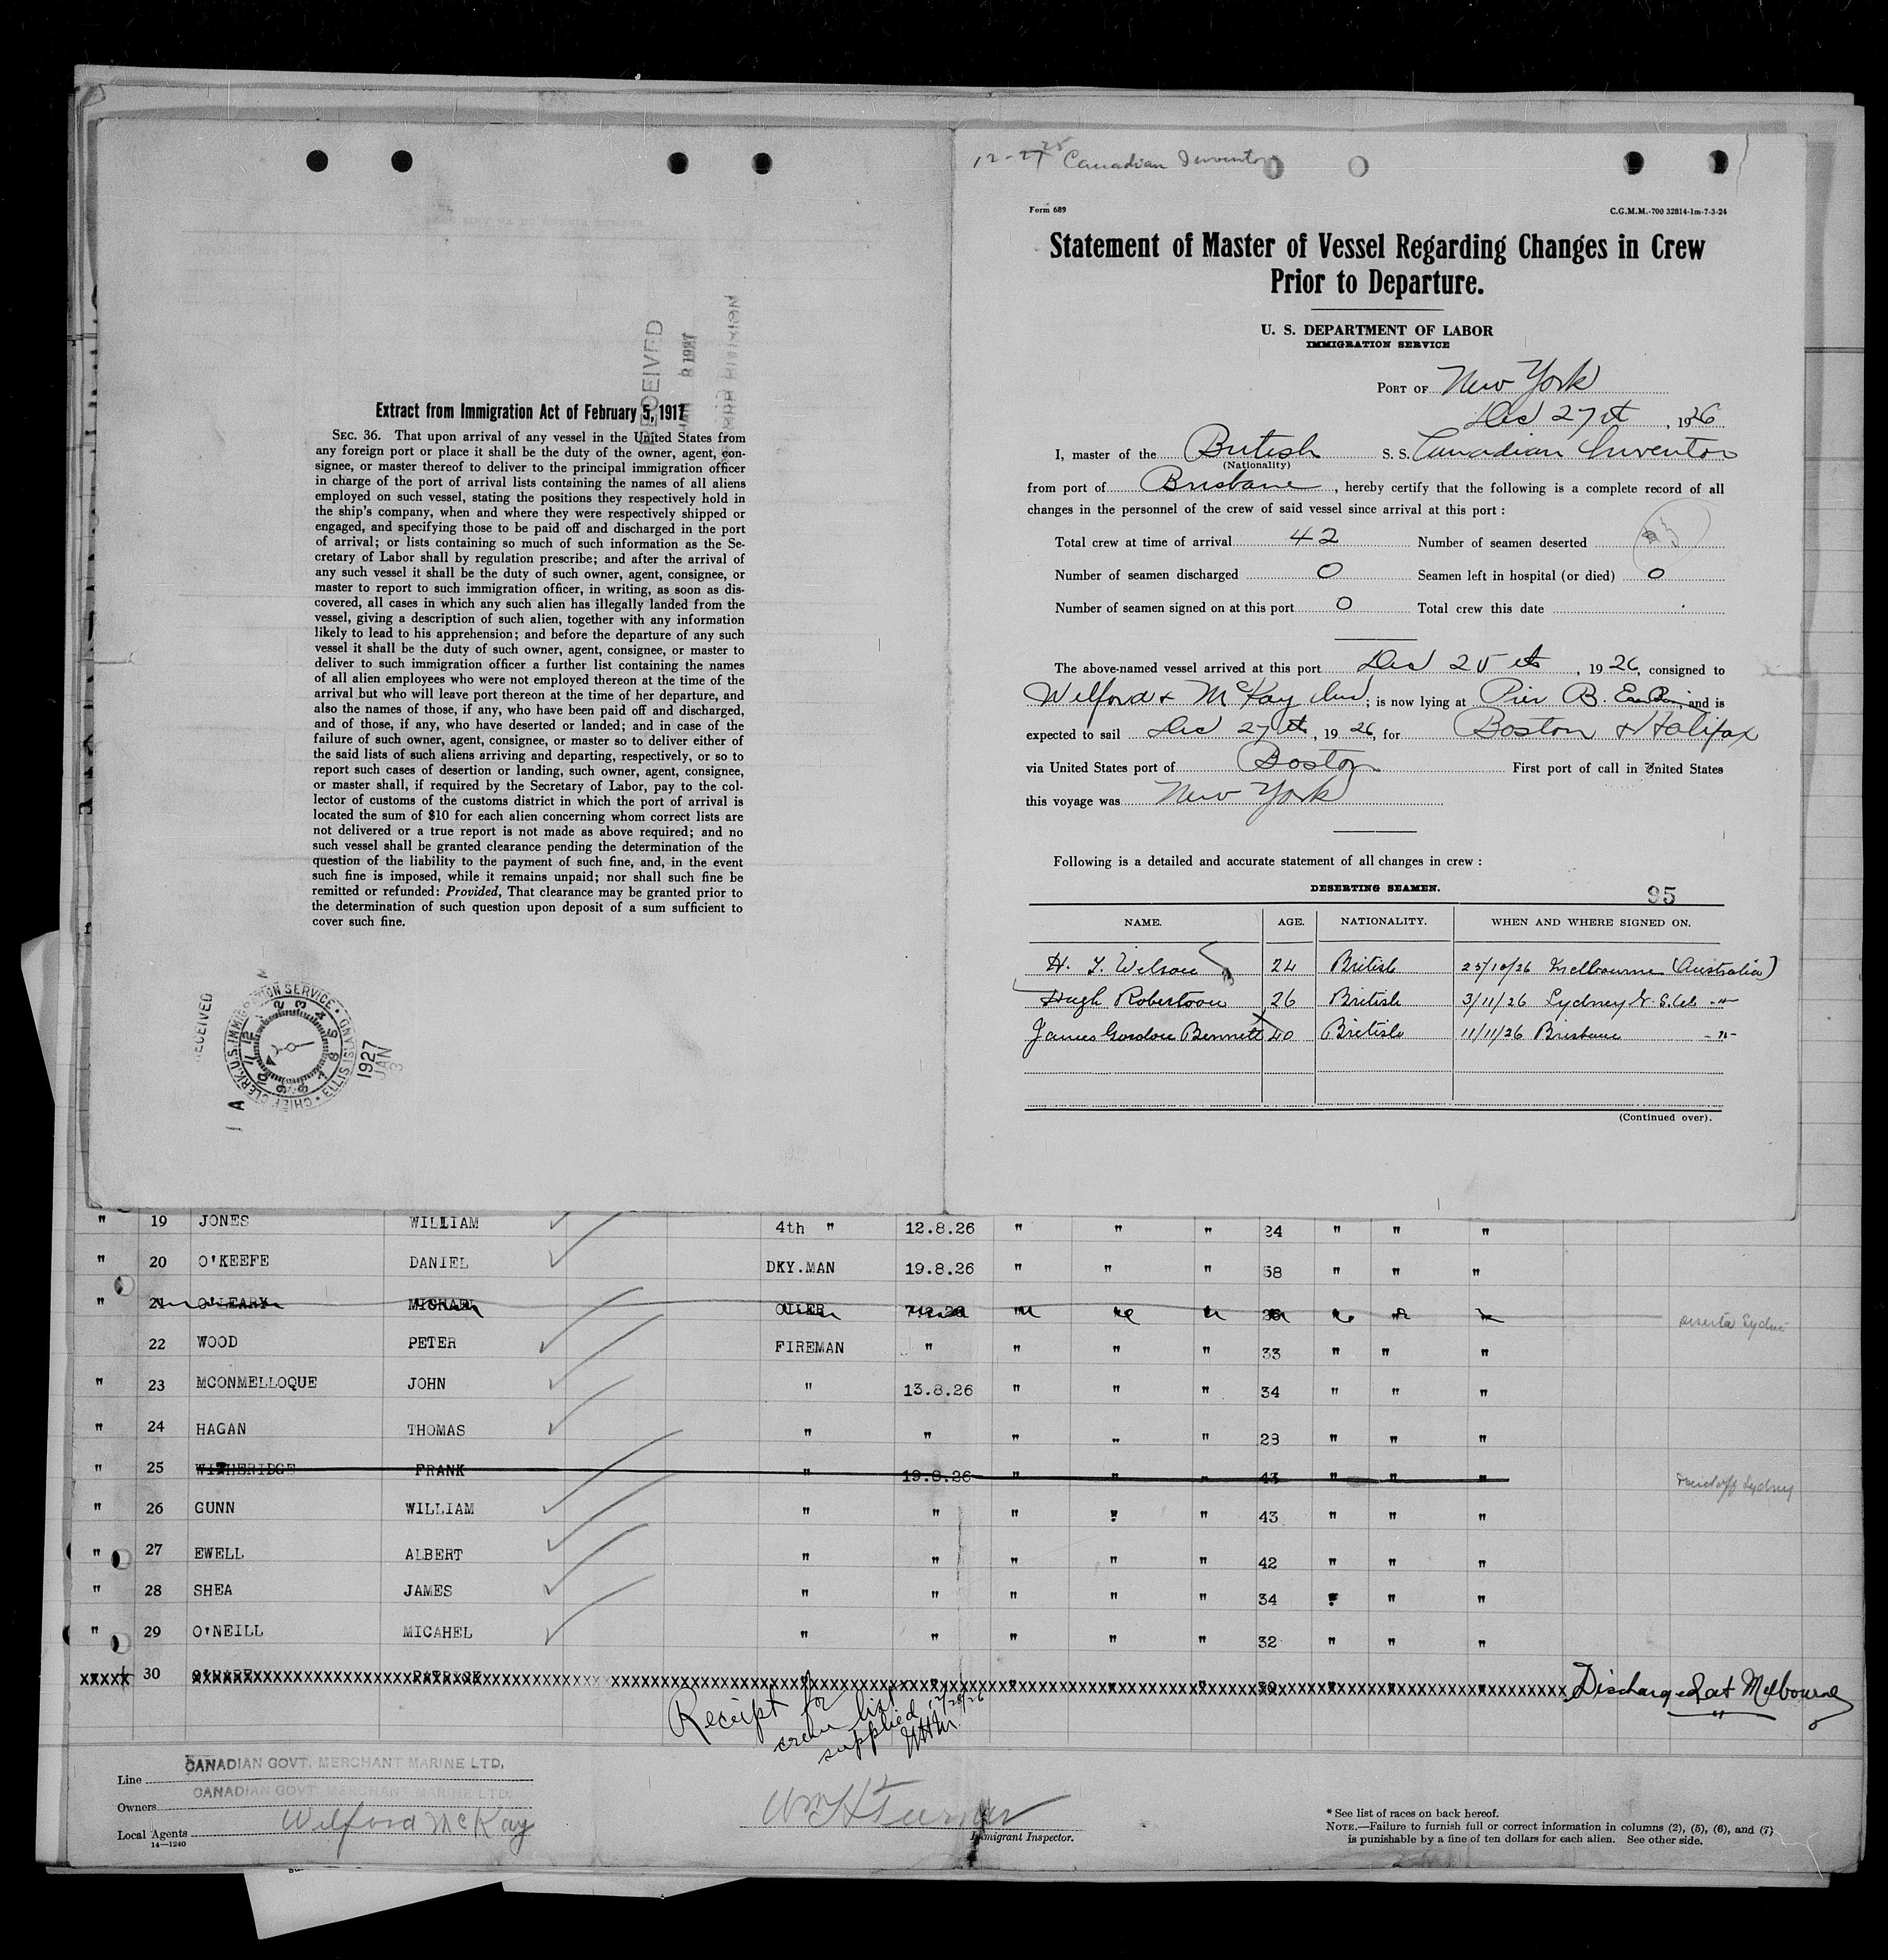 Extract from Immigration Act of February 5, 1917
SEC. 36. That upon arrival of any vessel in the United States from
any foreign port or place it shall be the duty of the owner, agent, con-
signee, or master thereof to deliver to the principal immigration officer
in charge of the port of arrival lists containing the names of all aliens
employed on such vessel, stating the positions they respectively hold in
the ship's company, when and where they were respectively shipped or
engaged, and specifying those to be paid off and discharged in the port
of arrival; or lists containing so much of such information as the Se-
cretary of Labor shall by regulation prescribe; and after the arrival of
any such vessel it shall be the duty of such owner, agent, consignee, or
master to report to such immigration officer, in writing, as soon as dis-
covered, all cases in which any such alien has illegally landed from the
vessel, giving a description of such alien, together with any information
likely to lead to his apprehension; and before the departure of any such
vessel it shall be the duty of such owner, agent, consignee, or master to
deliver to such immigration officer a further list containing the names
of all alien employees who were not employed thereon at the time of the
arrival but who will leave port thereon at the time of her departure, and
also the names of those, if any, who have been paid off and discharged,
and of those, if any, who have deserted or landed; and in case of the
failure of such owner, agent, consignee, or master so to deliver either of
the said lists of such aliens arriving and departing, respectively, or so to
report such cases of desertion or landing, such owner, agent, consignee,
or master shall, if required by the Secretary of Labor, pay to the col-
lector of customs of the customs district in which the port of arrival is
located the sum of $10 for each alien concerning whom correct lists are
not delivered or a true report is not made as above required; and no
such vessel shall be granted clearance pending the determination of the
question of the liability to the payment of such fine, and, in the event
such fine is imposed, while it remains unpaid; nor shall such fine be
remitted or refunded: Provided, That clearance may be granted prior to
the determination of such question upon deposit of a sum sufficient to
cover such fine.
RECEIVED
RECEIVED
CHIEF CLERK, U.S. IMMIGRATION SERVICE • ELLIS ISLAND
1927
JAN
3
Canadian Inventor
Form 689 C.G.M.M.-700 32814-1m-7-3-24
Statement of Master of Vessel Regarding Changes in Crew
Prior to Departure.
U. S. DEPARTMENT OF LABOR
IMMIGRATION SERVICE
PORT OF New York
Dec 27th, 1926
I, master of the British S. S. Canadian Inventor
(Nationality)
from port of Brisbane, hereby certify that the following is a complete record of all
changes in the personnel of the crew of said vessel since arrival at this port :
Total crew at time of arrival 42 Number of seamen deserted 3
Number of seamen discharged 0 Seamen left in hospital (or died) 0
Number of seamen signed on at this port 0 Total crew this date
The above-named vessel arrived at this port Dec 25th, 1926, consigned to
Welford & McKay Ind; is now lying at Pier B. and is
expected to sail Dec 27th, 1926, for Boston & Halifax
via United States port of Boston First port of call in United States
this voyage was New York
Following is a detailed and accurate statement of all changes in crew :
DESERTING SEAMEN. 95
NAME. AGE. NATIONALITY. WHEN AND WHERE SIGNED ON.
H. Wilson 24 British 25/10/26 Melbourne (Australia)
Hugh Robertson 26 British 3/11/26 Sydney -"-
James Gordon Bennett 40 British 11/11/26 Brisbane -"-
(Continued over).
" 19 JONES WILLIAM 4th " 12.8.26 " " " 24 " " "
" 20 O'KEEFE DANIEL DKY.MAN 19.8.26 " " " 58 " " "
" 21 O'LEARY MICHAEL OILER
22 WOOD PETER FIREMAN " " " " 33 " " "
" 23 MCONMELLOQUE JOHN " 13.8.26 " " " 34 " " "
" 24 HAGAN THOMAS " " " " " 23 " " "
" 25 WITHERIDGE FRANK " 19.8.26 " " " 43 " " " Sydney
" 26 GUNN WILLIAM " " " " " 43 " " "
" 27 EWELL ALBERT " " " " " 42 " " "
" 28 SHEA JAMES " " " " " 34 " " "
" 29 O'NEILL MICAHEL " " " " " 32 " " "
30 PATRICK Discharged at Melbourne
Receipt for
crew list
supplied 12/28/26
Line CANADIAN GOVT. MERCHANT MARINE LTD.
Owners CANADIAN GOVT. MERCHANT MARINE LTD.
Local Agents Welford McKay
14—1240
Wm H Turner
Immigrant Inspector.
* See list of races on back hereof.
NOTE.—Failure to furnish full or correct information in columns (2), (5), (6), and (7)
is punishable by a fine of ten dollars for each alien. See other side.